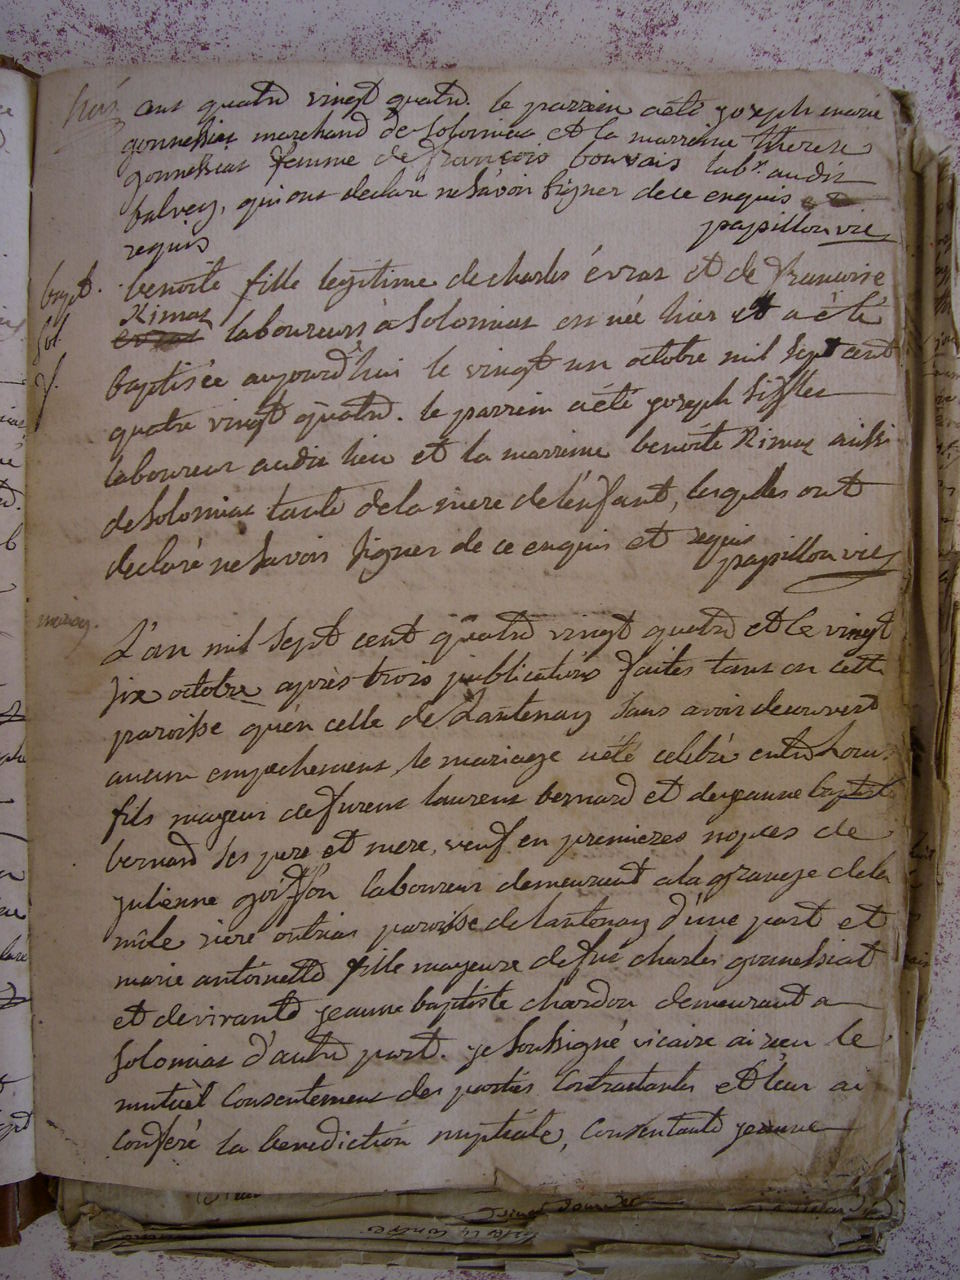 cent quatre vingt quatre. le parrein a été joseph marie
gonnessiat marchand de Solomiac et la marreine therese
gonnessiat femme de françois bouvais lab.r audit
balvey, qui ont declaré ne Savoir Signer de ce enquis
requis papillon vic
bapt. benoite fille legitime de charles évrar et de francoise
Sol. Rimaz laboureurs à Solomiat en née hier et a été
baptisée aujourd'hui le vingt un octobre mil Sept cent
quatre vingt quatre. le parrein a été joseph
laboureur audit lieu et la marreine benoite Rimaz aussi
de Solomiac tante de la mere de l'enfant, lesquels ont
declaré ne Savoir Signer de ce enquis et requis
papillon vic
mariag.
L'an mil Sept cent quatre vingt quatre et le vingt
Six octobre après trois publications faites tant en cette
paroisse qu'en celle de Lantenay Sans avoir decouvert
aucun empechement le mariage a été celebré entre Loui
fils mayeur de furent laurent bernard et de jeanne baptiste
bernard Ses pere et mere, veuf en premieres nopces de
julienne laboureur demeurant a la grange de la
mûle riere outriat paroisse de lantenay d'une part et
marie antoinette fille mayeure de fut charles gonnessiat
et de vivante jeanne baptiste chardon demeurant a
Solomiac d'autre part. je Soussigné vicaire ai reçu le
mutuel Consentement des parties Contractantes et leur ai
Conferé la benediction nuptiale, Consentante jeanne